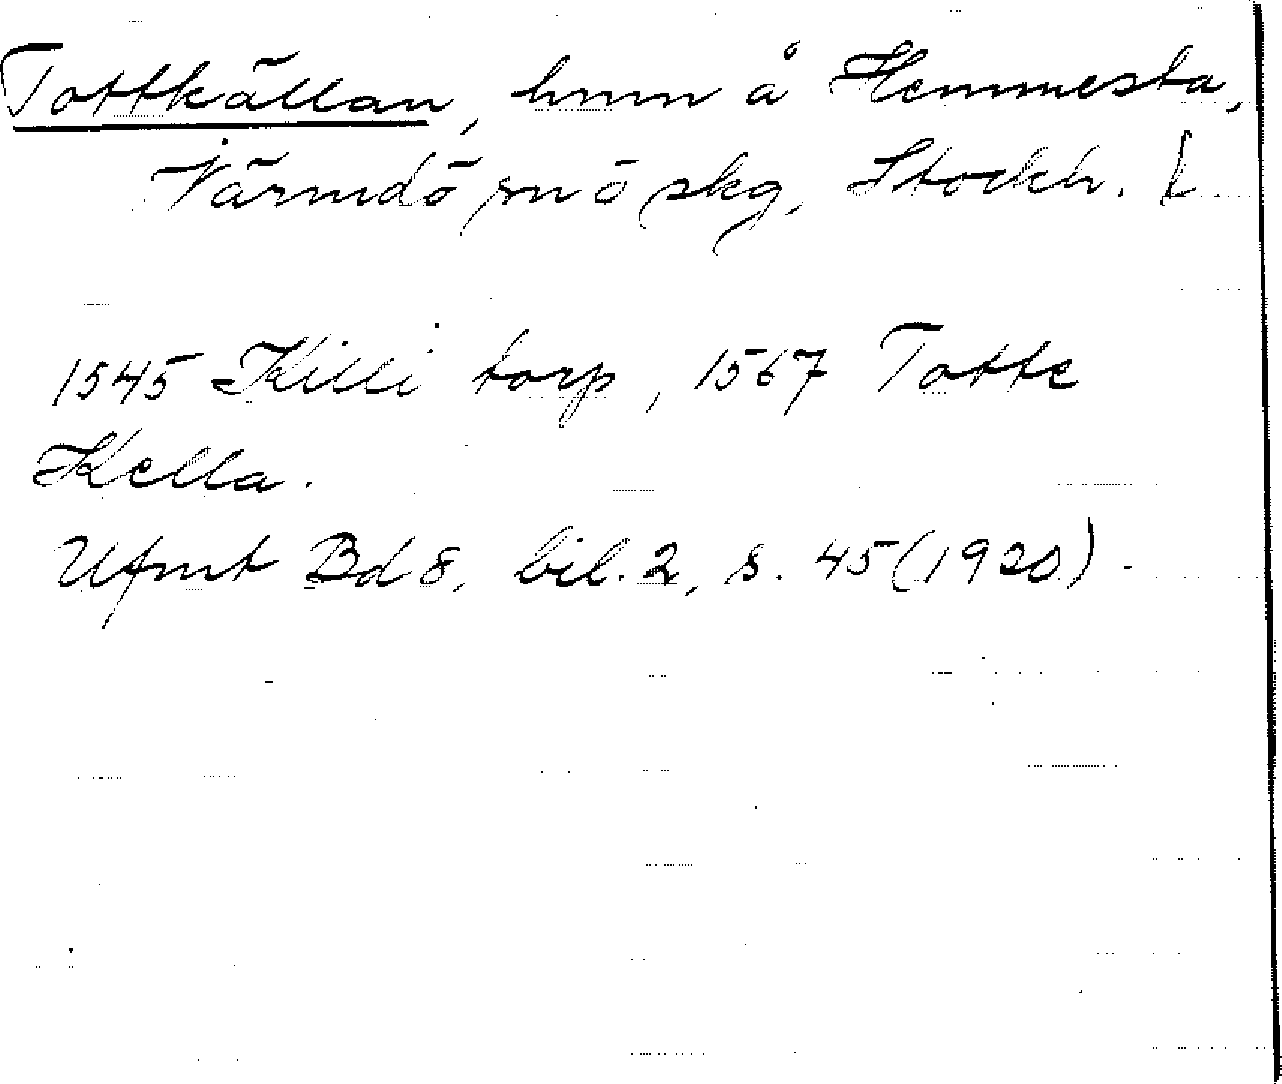 Tottkällan, hmn å Hemmesta,
Värmdö sn ö skg, Stockh. l
1545 Killi torp, 1567 Totte
Kella.
Ufmt Bd 8, bil. 2, s. 45 (1920).